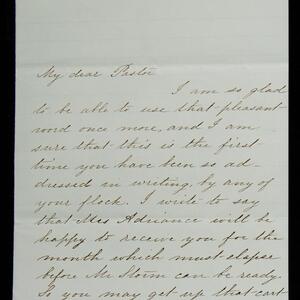 My dear Pastor
I am so glad
to be able to use that pleasant
word once more, and I am
sure that this is the first
time you have been so ad-
dressed in writing, by any of
your flock. I write to say
that Mrs Adriance will be
happy to receive you for the
month which must elapse
before Mr Storm can be ready.
So you may get up that cart